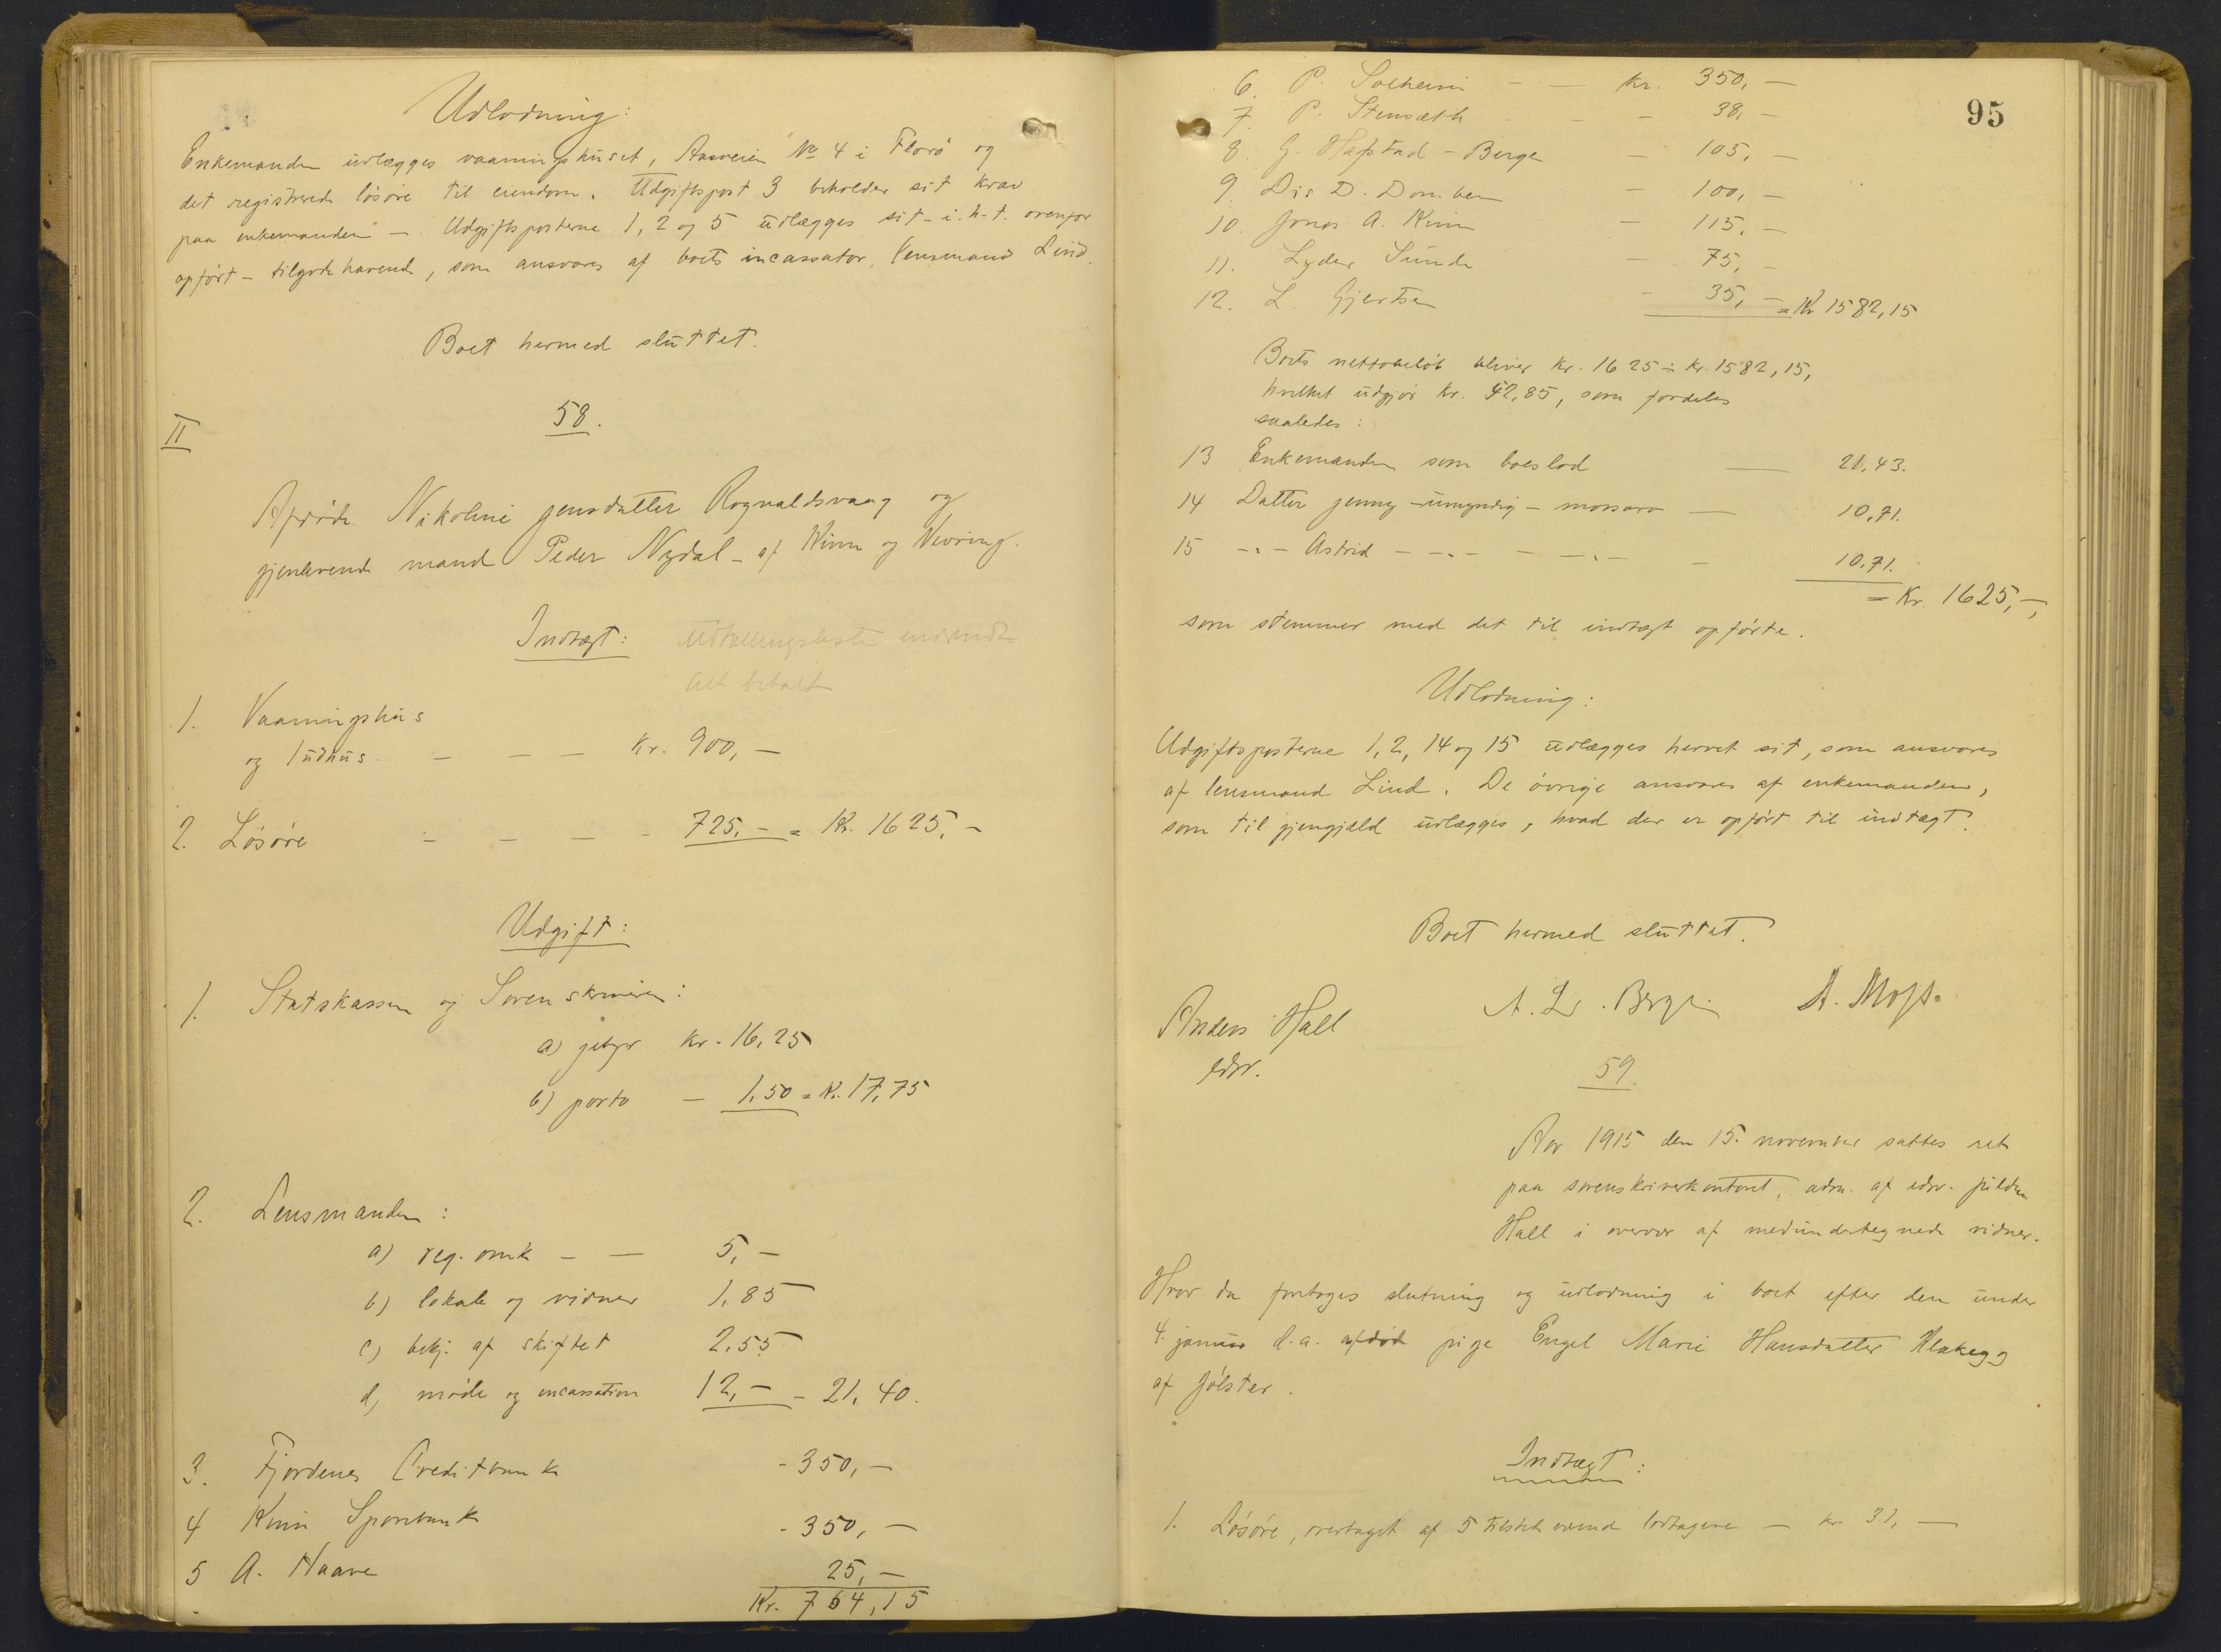 Udlodning:
Enkemanden udlægges vaaningshuset, Aasveien No 4 i Florö og
det registrerede lösöre til eiendom. Udgiftspost 3 beholder sit krav
paa enkemanden —. Udgiftsposterne 1, 2 og 5 udlægges sit - i.h-t. ovenfor
opfört - tilgodehavende, som ansvares af boets incassator, lensmand Lind.
Boet hermed sluttet.
II
58.
Afdöde Nikoline Jensdatter Rognaldsvaag og
gjenlevende mand Peder Nydal - af Kinn og Nevring.
Indtægt:
Alt betalt
1. Vaaningshus
og 1 udhus — — — Kr. 900,—
2. Lösöre — — — — 725,— = Kr. 1625,—
Udgift:
1. Statskassen og Sorenskriveren:
a) gebyr Kr. 16,25
b) porto — 1,50 = Kr. 17,75
2. Lensmanden:
a) reg. omk — — 5,—
b) lokale og vidner 1,85
c) bekj. af skiftet 2,55
d) möde og incassation 12,— - 21,40.
3. Fjordenes Creditbank - 350,—
4 Kinn Sparebank - 350,—
5 A. Haave 25,—
Kr. 764,15
95
6. P. Solheim — — Kr. 350,—
7. P. Stensæth — — 38,—
8. G. Hafstad - Bergen — 105,—
9. D. — 100,—
10. Jonas A. Kinn — 115,—
11. Lyder Sunde — 75,—
12. L. Gjertsen — 35,— = Kr 1582,15
Boets nettobelöb bliver Kr. 1625 ÷ Kr. 1582,15,
hvilket udgjör Kr. 42,85, som fordeles
saaledes:
13 Enkemanden som boeslod — 21,43.
14 Datter Jenny - umyndig - morsarv — 10,71.
15 -"- Astrid - -"- - -"- — 10,71.
= Kr. 1625,—,
som stemmer med det til indtægt opförte.
Udlodning:
Udgiftsposterne 1, 2, 14 og 15 udlægges hervet sit, som ansvares
af lensmand Lind. De övrige ansvares af enkemanden,
som til gjengjæld udlægges, hvad der er opfört til indtægt.
Boet hermed sluttet.
Anders Hall
edsv.
59.
Aar 1915 den 15. november sattes ret
paa sorenskriverkontoret, adm. af edsv. fuldm.
Hall i overvær af medundertegnede vidner.
Hvor da foretoges slutning og udlodning i boet efter den under
4. januar d.a. afdöde pige Engel Marie Hansdatter Klakegg
af Jölster.
Indtægt:
1. Lösöre, overtaget af 5 tilstedeværende lodtagere — kr. 31,—